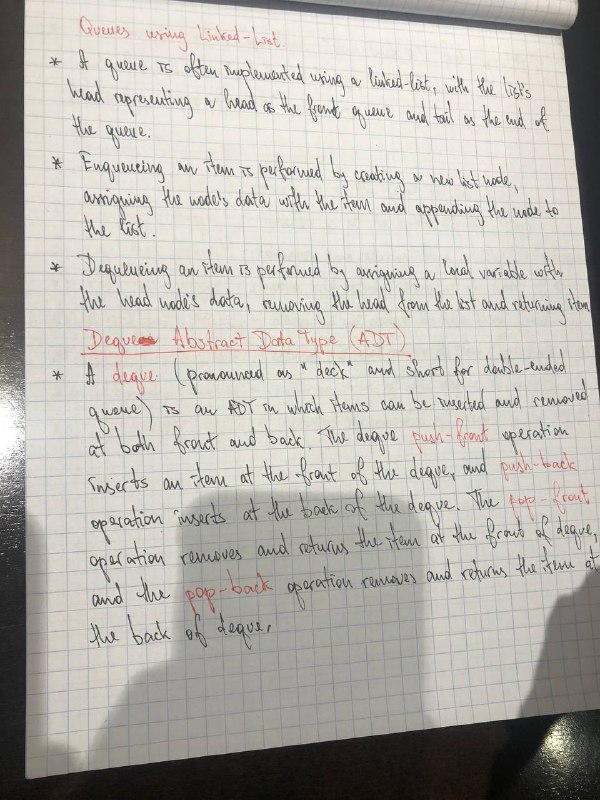 Queues using Linked-List.
* A queue is often implemented using a linked-list, with the list's
head representing a head as the front queue and tail as the end of
the queue.
* Enqueueing an item is performed by creating a new list node,
assigning the node's data with the item and appending the node to
the list.
* Dequeueing an item is performed by assigning a local variable with
the head node's data, removing the head from the list and returning item
Deque Abstract Data Type (ADT)
* A deque (pronounced as "deck" and short for double-ended
queue) is an ADT in which items can be inserted and removed
at both front and back. The deque push-front operation
inserts an item at the front of the deque, and push-back
operation inserts at the back of the deque. The pop-front
operation removes and returns the item at the front of deque,
and the pop-back operation removes and returns the item at
the back of deque.